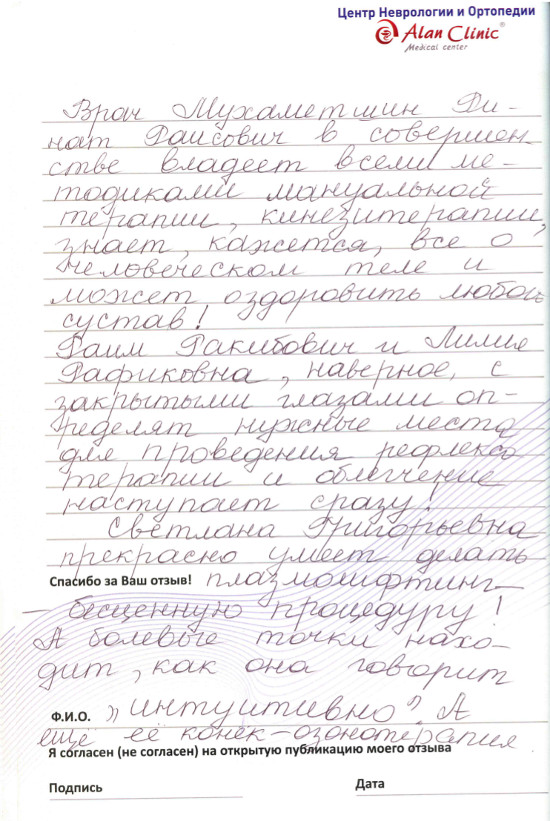 Центр Неврологии и Ортопедии
Alan Clinic®
Medical center
Врач Мухаметшин Ри-
нат Раисович в совершен-
стве владеет всеми ме-
тодиками мануальной
терапии, кинезитерапии,
знает, кажется, все о
человеческом теле и
может оздоровить любой
сустав!
Раим Ракибович и Лилия
Рафиковна, наверное, с
закрытыми глазами оп-
ределят нужные места
для проведения рефлексо
терапии и облегчение
наступает сразу!
Светлана Григорьевна
прекрасно умеет делать
Спасибо за Ваш отзыв! плазмолифтинг
– бесценную процедуру!
А болевые точки нахо-
дит, как она говорит
Ф.И.О. „интуитивно". А
ещё её конек-озонотерапия
Я согласен (не согласен) на открытую публикацию моего отзыва
Подпись Дата